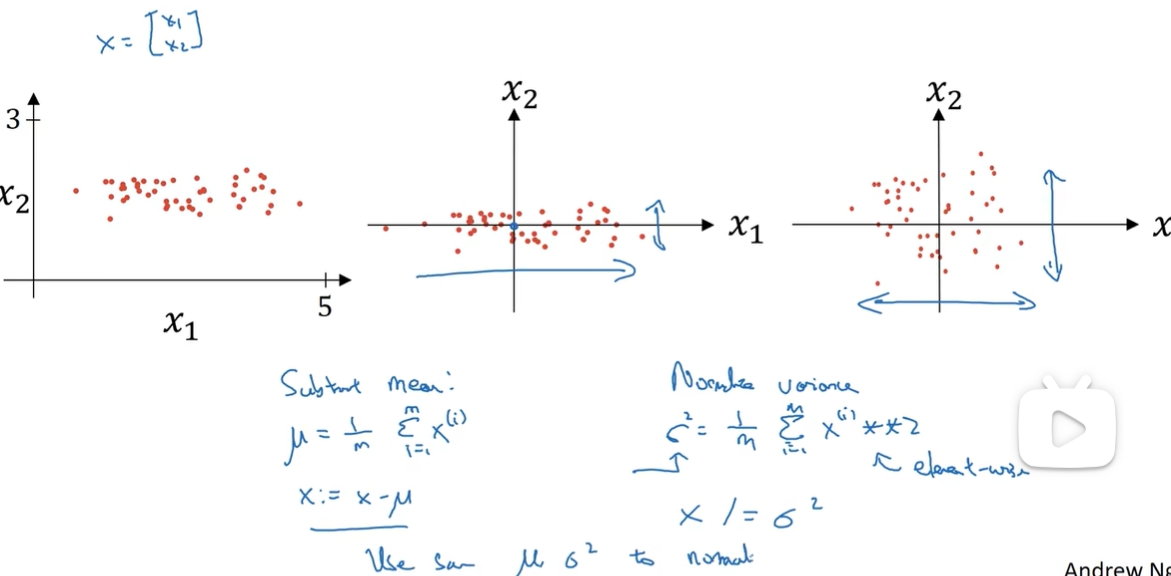 x = [x1 x2]
3
x2
x1
5
x2
x1
x2
x
Subtract mean:
μ = 1/m Σ i=1 m x(i)
x := x - μ
Normalize variance
σ² = 1/m Σ i=1 m x(i) **2
element-wise
x /= σ²
Use sam μ σ² to normal
Andrew N